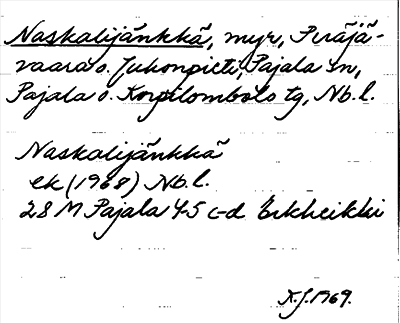 Naskalijänkkä, myr, Peräjä-
vaara o. Juhonpieti, Pajala sn,
Pajala o. Korpilombolo tg, Nb. l.
Naskalijänkkä
ek (1968) Nb. l.
28 M Pajala 4-5 c-d Erkheikki
K.J. 1969.